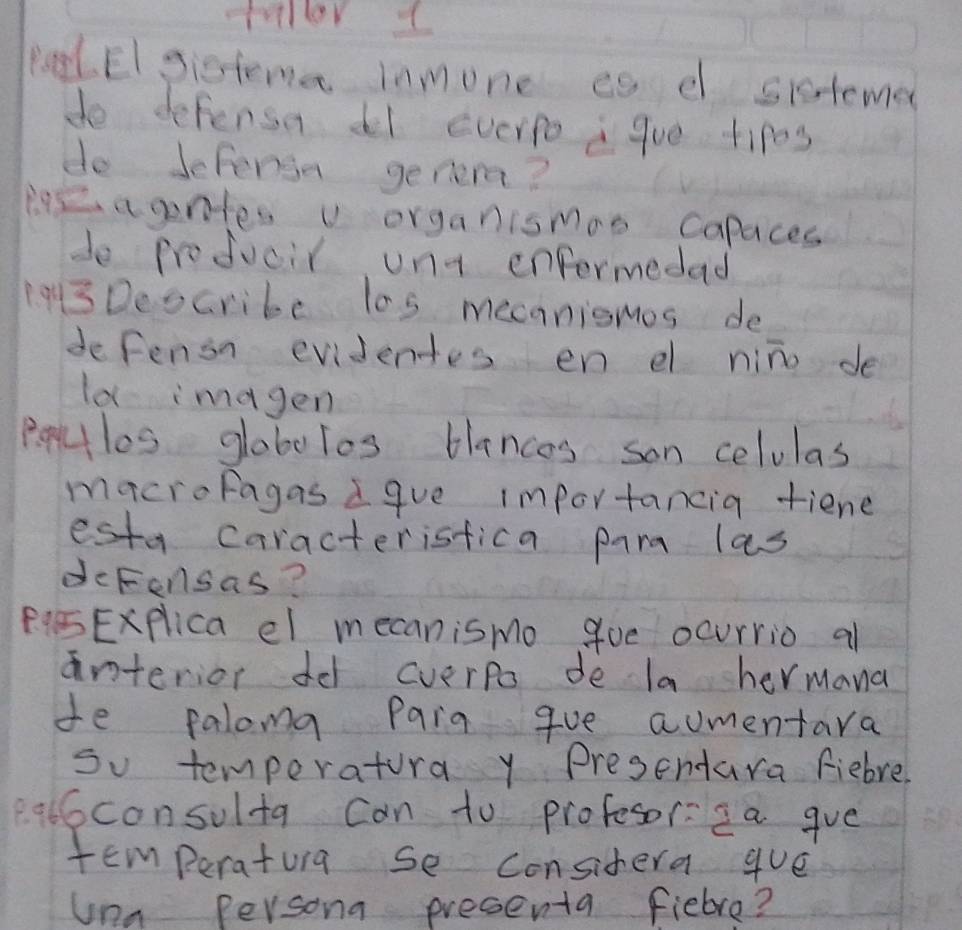 taller 1
El sistema inmone es el sistema
de defensa del cuerpo ¿ que tipos
de defensa genera?
agentes u organismos capaces
de producir una enfermedad
3 Describe los mecanismos de
defensa evidentes en el niño de
la imagen
4 los globulos blancos son celulas
macrofagas ¿ que importancia tiene
esta caracteristica para las
defensas?
5 Explica el mecanismo que ocurrio al
interior del cuerpo de la hermana
de paloma para que aumentara
su temperatura y presentara fiebre.
6 consulta con tu profesor: ¿a que
temperatura se considera que
una persona presenta fiebre?